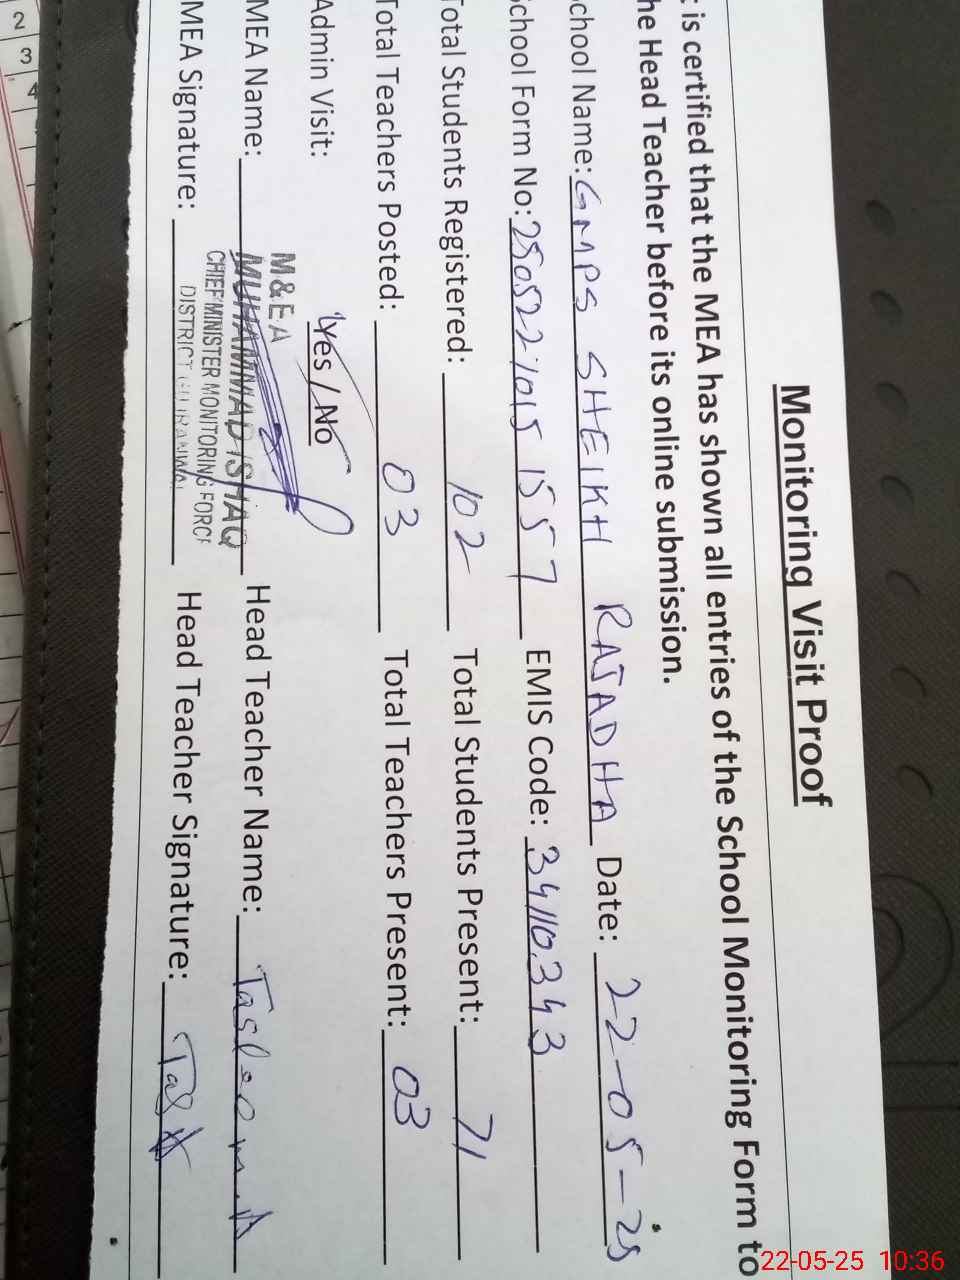 Monitoring Visit Proof
t is certified that the MEA has shown all entries of the School Monitoring Form to
he Head Teacher before its online submission.
chool Name: GMPS SHEIKH RAJADHA Date: 22-05-25
School Form No: 250522101515 57 EMIS Code: 34110343
Total Students Registered: 102 Total Students Present: 71
Total Teachers Posted: 03 Total Teachers Present: 03
Admin Visit: Yes / No
M&EA
MEA Name: MUHAMMAD ISHAQ Head Teacher Name:
CHIEF MINISTER MONITORING FORCE
MEA Signature: DISTRICT Head Teacher Signature:
2
3
4
22-05-25 10:36